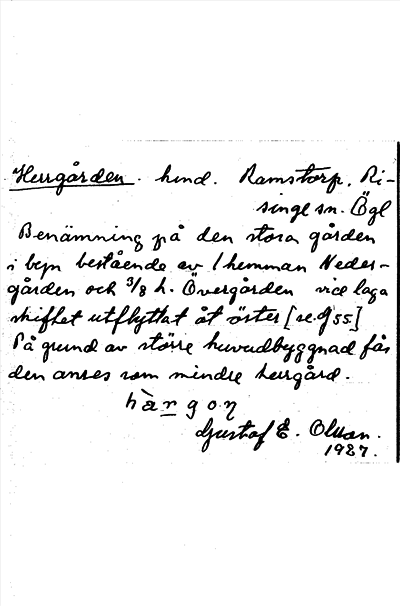 Herrgården. hmd. Ramstorp, Ri-
singe sn. Ögl
Benämning på den stora gården
i byn bestående av 1 hemman Neder-
gården och 3/8 h. Övergården vid laga
skiftet utflyttat åt öster [se. 55]
På grund av större huvudbyggnad får
den anses som mindre herrgård.
hàrgoŋ
Gustaf E. Olsson.
1927.